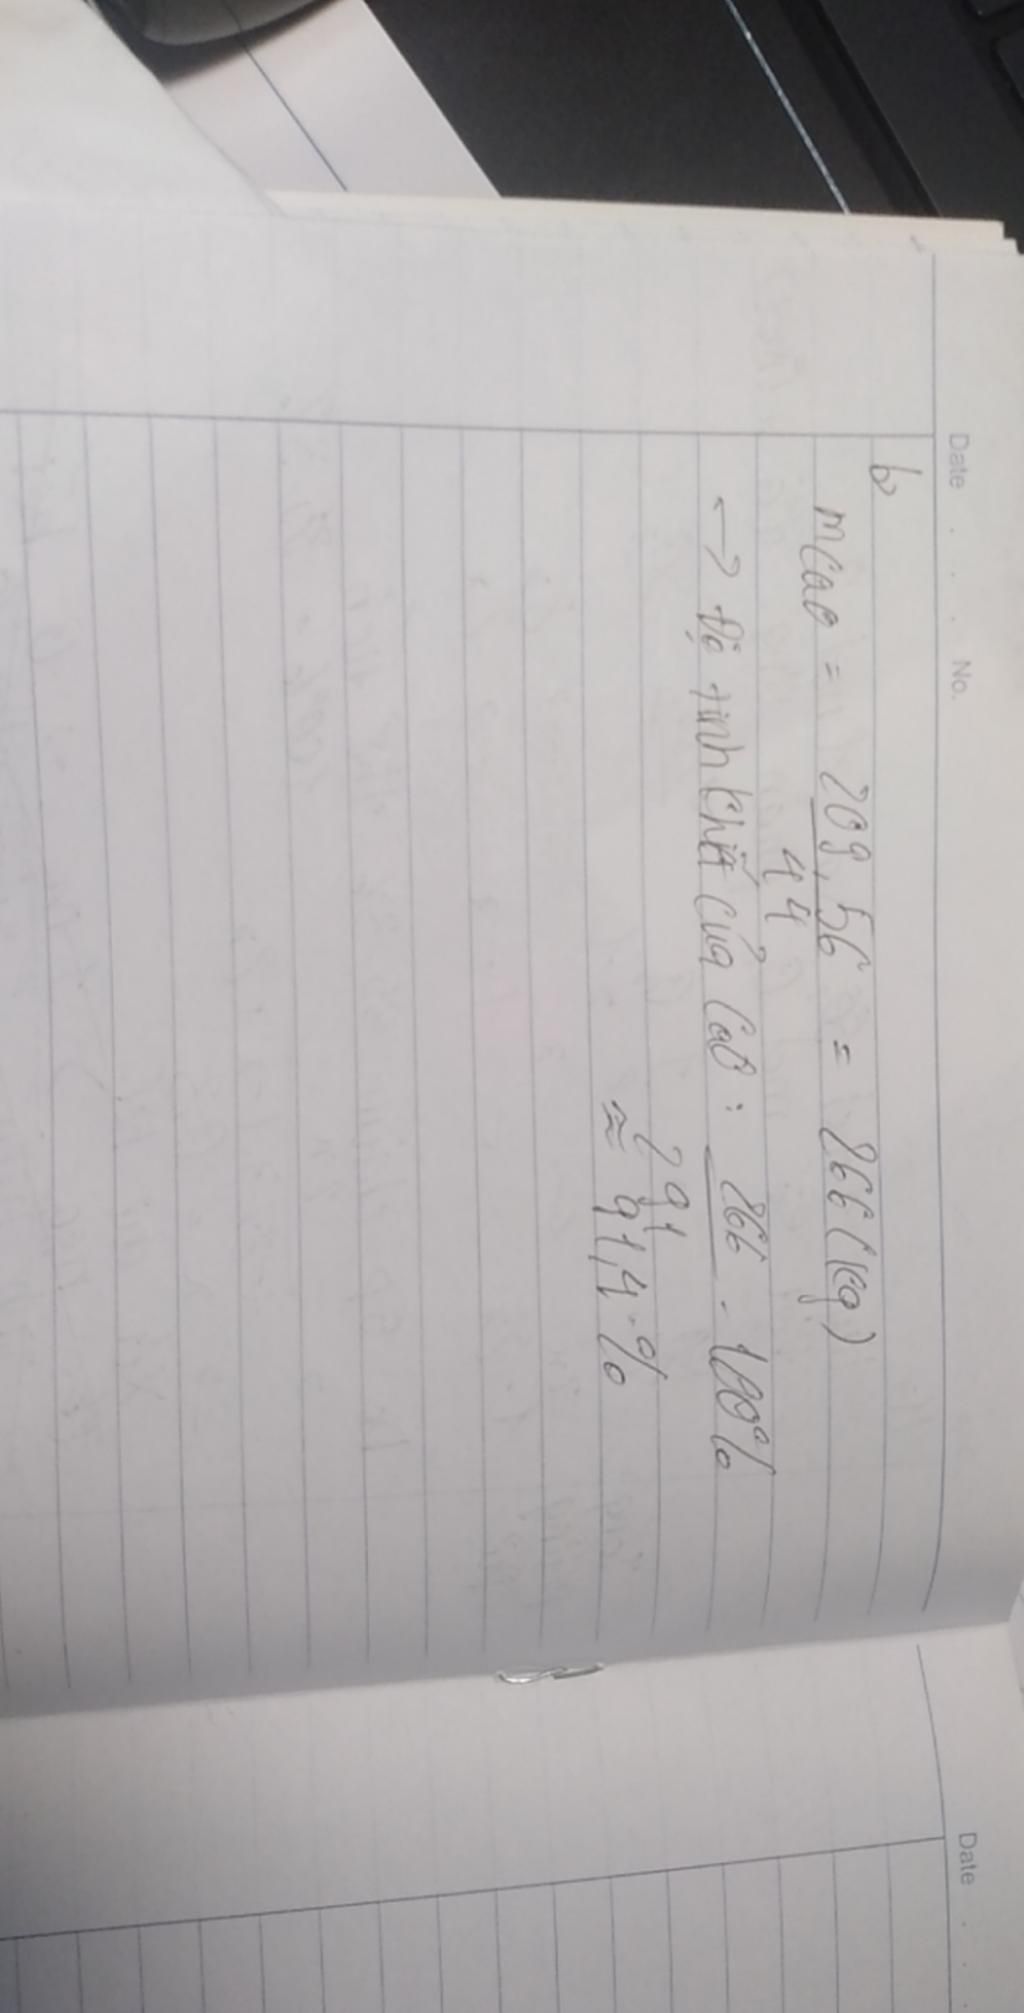 Date . . . No.
b)
mCaO = 209,56 = 266 (kg)
44
-> Độ tinh khiết của CaO: 266 . 100%
291
≈ 91,4 %
Date . .